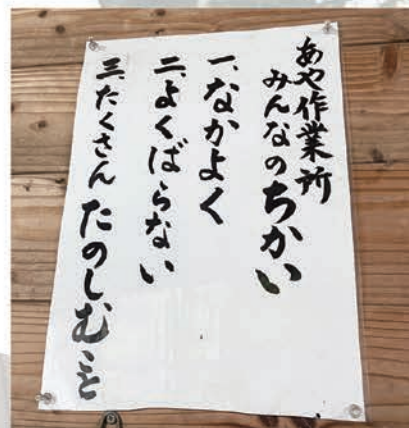 あや作業所
みんなのちかい
一、なかよく
二、よくばらない
三、たくさんたのしむこと